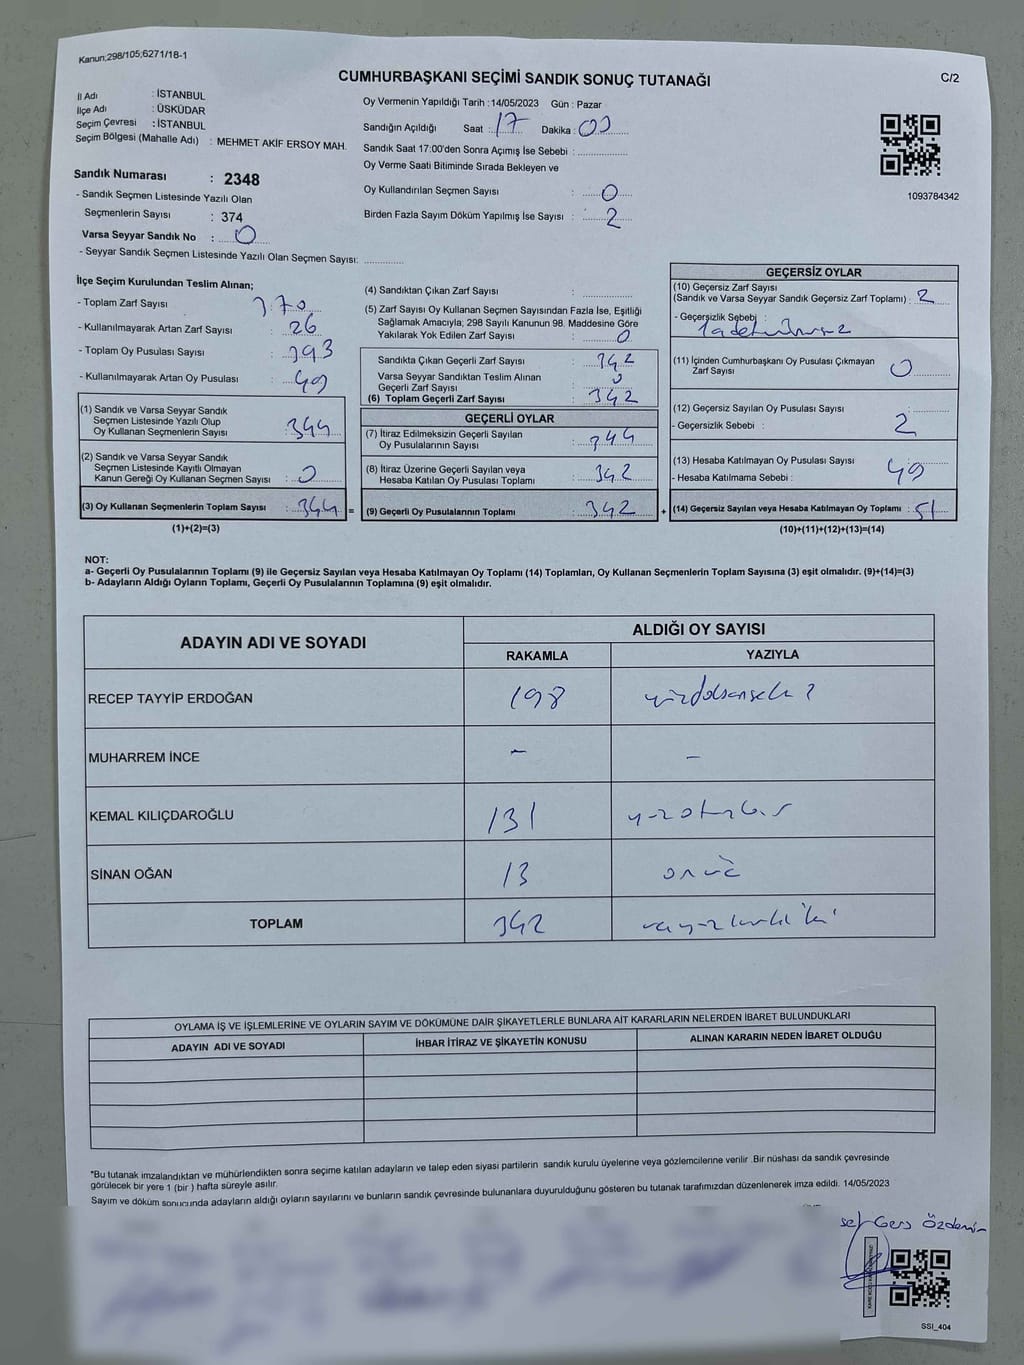 Kanun;298/105;6271/18-1
CUMHURBAŞKANI SEÇİMİ SANDIK SONUÇ TUTANAĞI
C/2
İl Adı : İSTANBUL
İlçe Adı : ÜSKÜDAR
Seçim Çevresi : İSTANBUL
Seçim Bölgesi (Mahalle Adı) : MEHMET AKİF ERSOY MAH.
Sandık Numarası : 2348
- Sandık Seçmen Listesinde Yazılı Olan
Seçmenlerin Sayısı : 374
Varsa Seyyar Sandık No : 0
- Seyyar Sandık Seçmen Listesinde Yazılı Olan Seçmen Sayısı:
Oy Vermenin Yapıldığı Tarih : 14/05/2023 Gün : Pazar
Sandığın Açıldığı Saat : 17 Dakika : 00
Sandık Saat 17:00'den Sonra Açımış İse Sebebi :
Oy Verme Saati Bitiminde Sırada Bekleyen ve
Oy Kullandırılan Seçmen Sayısı : 0
Birden Fazla Sayım Döküm Yapılmış İse Sayısı : 2
1093784342
İlçe Seçim Kurulundan Teslim Alınan;
- Toplam Zarf Sayısı : 370
- Kullanılmayarak Artan Zarf Sayısı : 26
- Toplam Oy Pusulası Sayısı : 393
- Kullanılmayarak Artan Oy Pusulası : 49
(1) Sandık ve Varsa Seyyar Sandık
Seçmen Listesinde Yazılı Olup
Oy Kullanan Seçmenlerin Sayısı : 344
(2) Sandık ve Varsa Seyyar Sandık
Seçmen Listesinde Kayıtlı Olmayan
Kanun Gereği Oy Kullanan Seçmen Sayısı : 0
(3) Oy Kullanan Seçmenlerin Toplam Sayısı : 344 =
(1)+(2)=(3)
(4) Sandıktan Çıkan Zarf Sayısı :
(5) Zarf Sayısı Oy Kullanan Seçmen Sayısından Fazla İse, Eşitliği
Sağlamak Amacıyla; 298 Sayılı Kanunun 98. Maddesine Göre
Yakılarak Yok Edilen Zarf Sayısı : 0
Sandıkta Çıkan Geçerli Zarf Sayısı : 342
Varsa Seyyar Sandıktan Teslim Alınan
Geçerli Zarf Sayısı : 0
(6) Toplam Geçerli Zarf Sayısı : 342
GEÇERLİ OYLAR
(7) İtiraz Edilmeksizin Geçerli Sayılan
Oy Pusulalarının Sayısı : 344
(8) İtiraz Üzerine Geçerli Sayılan veya
Hesaba Katılan Oy Pusulası Toplamı : 342
(9) Geçerli Oy Pusulalarının Toplamı : 342 +
GEÇERSİZ OYLAR
(10) Geçersiz Zarf Sayısı
(Sandık ve Varsa Seyyar Sandık Geçersiz Zarf Toplamı) : 2
- Geçersizlik Sebebi :
(11) İçinden Cumhurbaşkanı Oy Pusulası Çıkmayan
Zarf Sayısı : 0
(12) Geçersiz Sayılan Oy Pusulası Sayısı :
- Geçersizlik Sebebi : 2
(13) Hesaba Katılmayan Oy Pusulası Sayısı : 49
- Hesaba Katılmama Sebebi :
(14) Geçersiz Sayılan veya Hesaba Katılmayan Oy Toplamı : 51
(10)+(11)+(12)+(13)=(14)
NOT:
a- Geçerli Oy Pusulalarının Toplamı (9) ile Geçersiz Sayılan veya Hesaba Katılmayan Oy Toplamı (14) Toplamları, Oy Kullanan Seçmenlerin Toplam Sayısına (3) eşit olmalıdır. (9)+(14)=(3)
b- Adayların Aldığı Oyların Toplamı, Geçerli Oy Pusulalarının Toplamına (9) eşit olmalıdır.
ADAYIN ADI VE SOYADI
ALDIĞI OY SAYISI
RAKAMLA YAZIYLA
RECEP TAYYİP ERDOĞAN 198
MUHARREM İNCE - -
KEMAL KILIÇDAROĞLU 131
SİNAN OĞAN 13 onüç
TOPLAM 342
OYLAMA İŞ VE İŞLEMLERİNE VE OYLARIN SAYIM VE DÖKÜMÜNE DAİR ŞİKAYETLERLE BUNLARA AİT KARARLARIN NELERDEN İBARET BULUNDUKLARI
ADAYIN ADI VE SOYADI İHBAR İTİRAZ VE ŞİKAYETİN KONUSU ALINAN KARARIN NEDEN İBARET OLDUĞU
*Bu tutanak imzalandıktan ve mühürlendikten sonra seçime katılan adayların ve talep eden siyasi partilerin sandık kurulu üyelerine veya gözlemcilerine verilir .Bir nüshası da sandık çevresinde
görülecek bir yere 1 (bir ) hafta süreyle asılır.
Sayım ve döküm sonucunda adayların aldığı oyların sayılarını ve bunların sandık çevresinde bulunanlara duyurulduğunu gösteren bu tutanak tarafımızdan düzenlenerek imza edildi. 14/05/2023
Özdemir
SSI_404